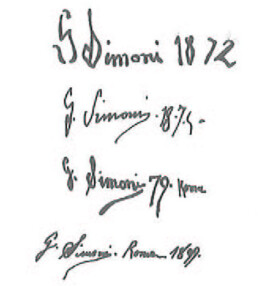 G Simoni 1872
G. Simoni. 187
G. Simoni 79. Roma
G. Simoni. Roma 189